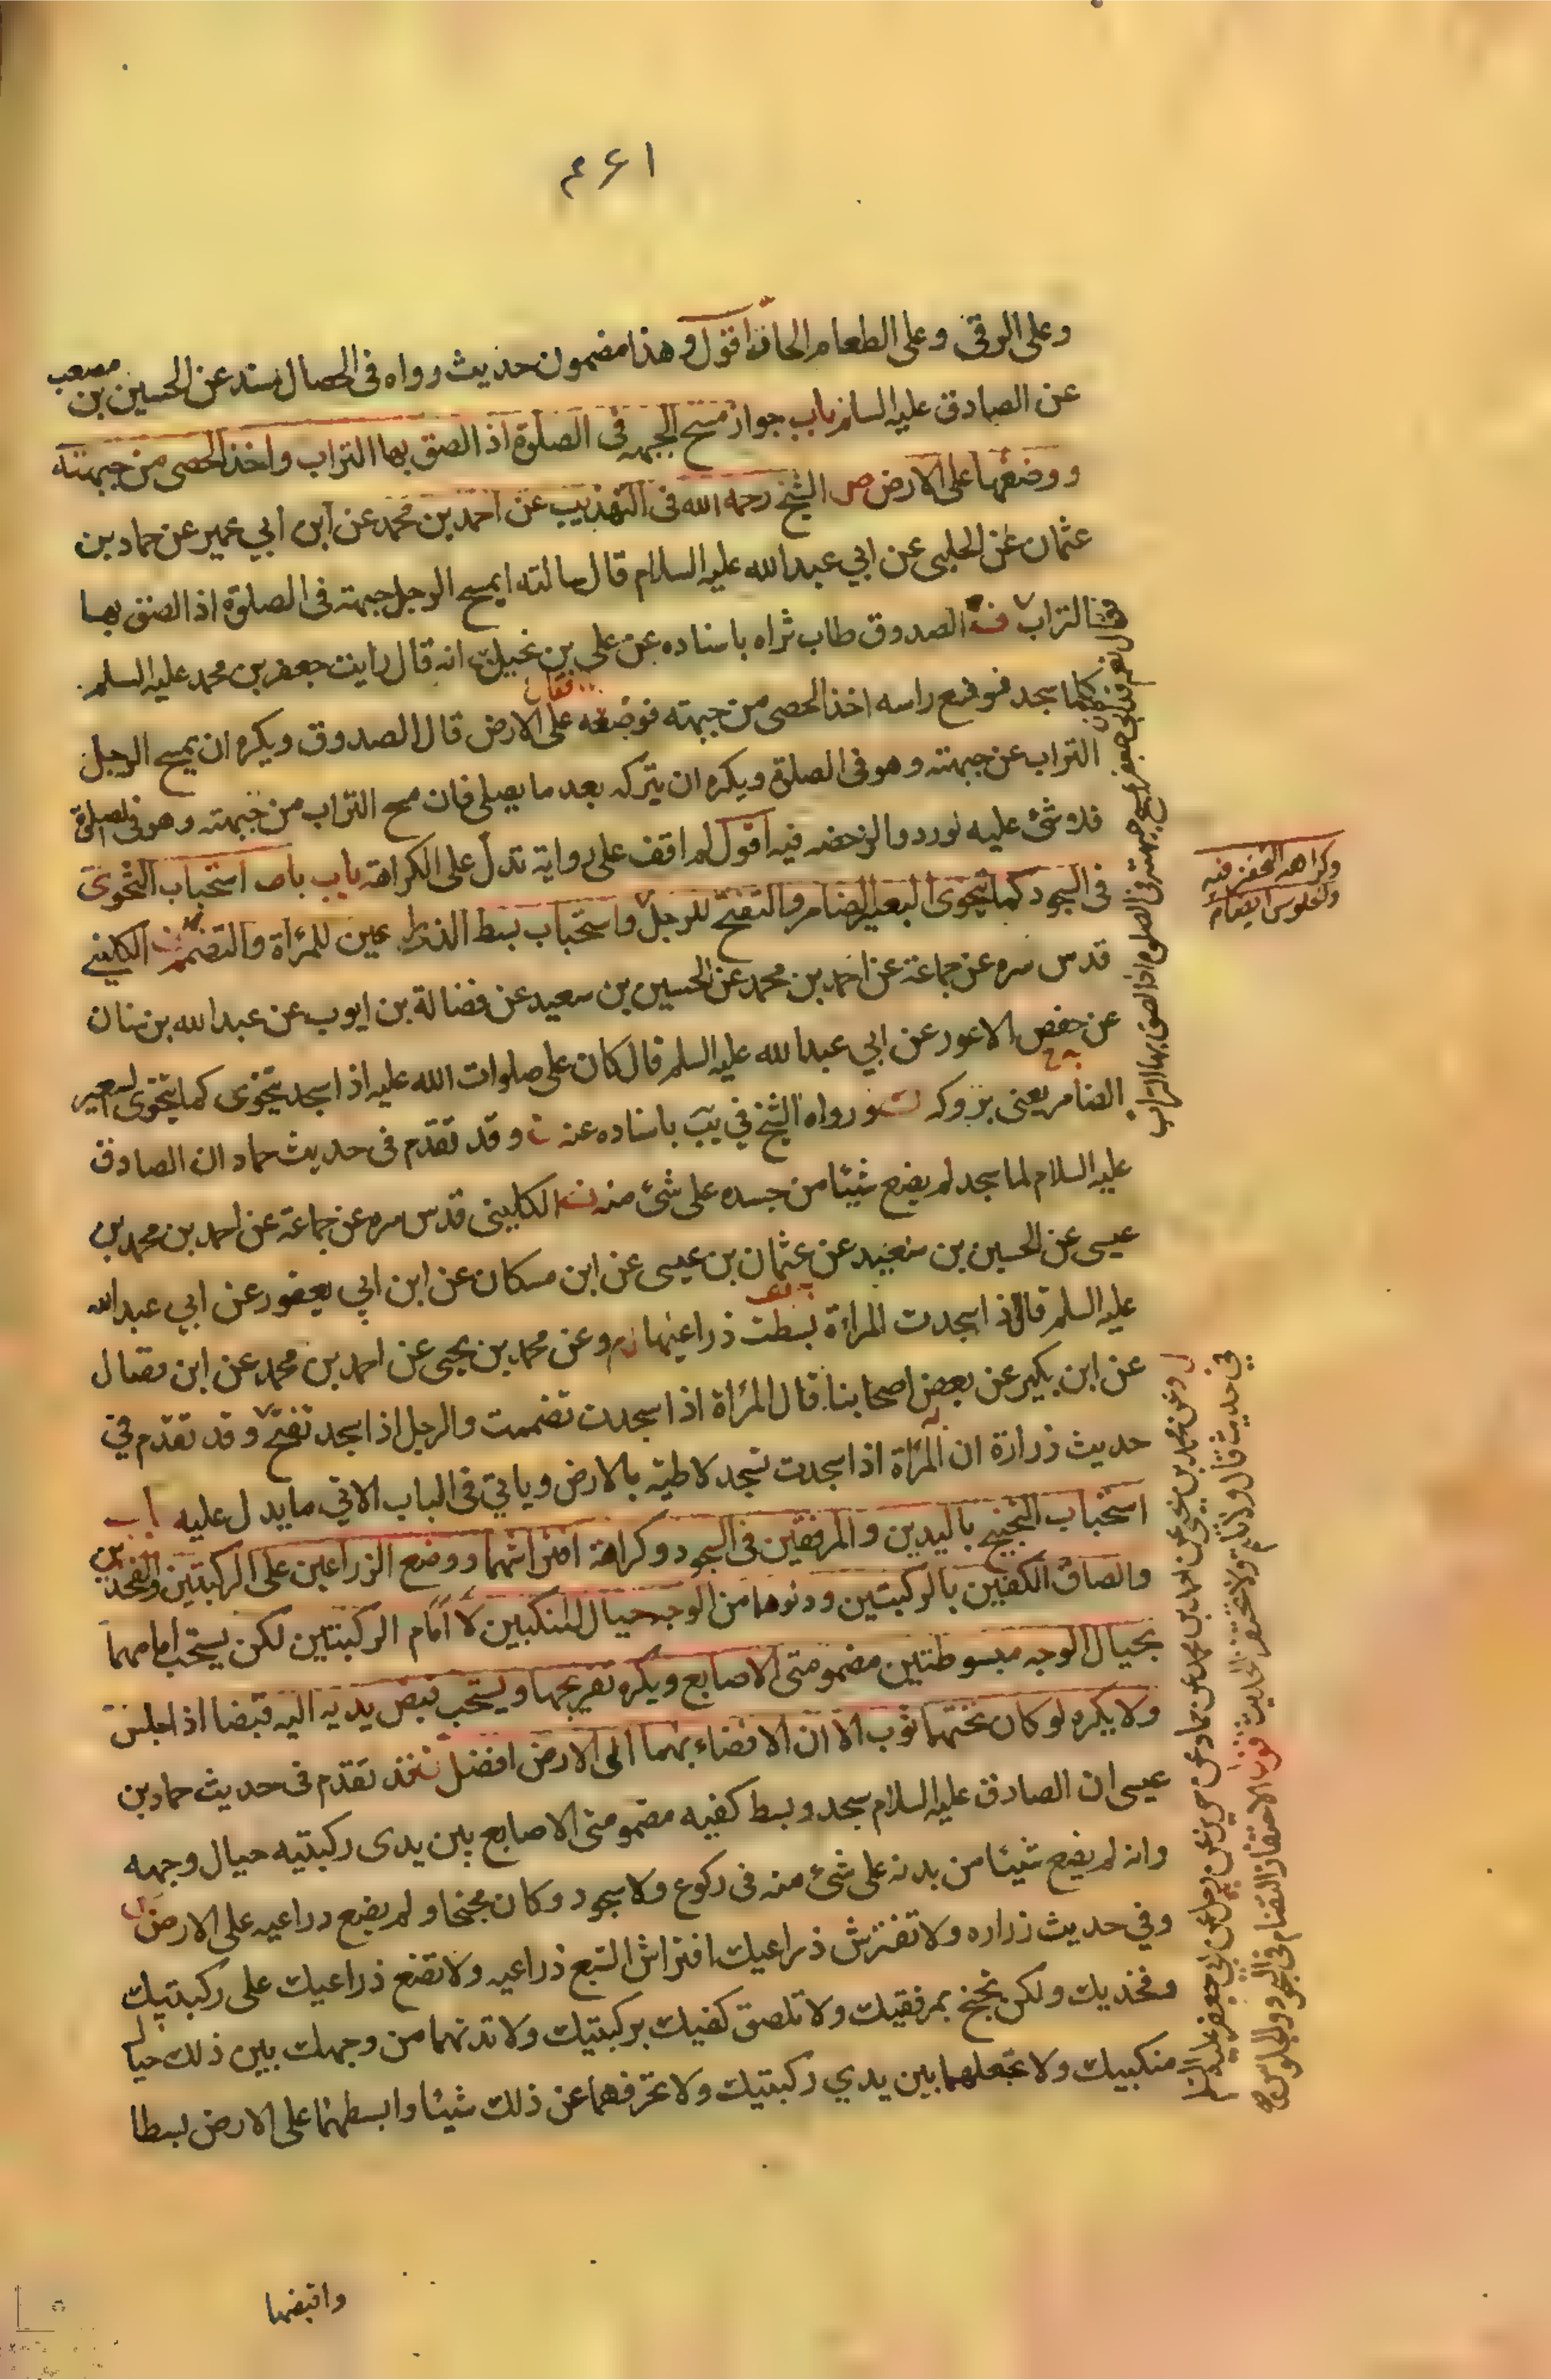 ۴۶۱
وعلى الرقى وعلى الطعام الحار اقول وهذا مضمون حديث رواه فى الخصال بسند عن الحسين بن مصعب
عن الصادق عليه السلم باب جواز مسح الجبهه فى الصلوة اذا الصق بها التراب واخذ الحصى من جبهته
ووضعها على الارض ص الشيخ رحمه الله فى التهذيب عن احمد بن محمد عن ابن ابي عمير عن حماد بن
عثمان عن الحلبى عن ابي عبد الله عليه السلام قال سالته ايمسح الرجل جبهته فى الصلوة اذا الصق بها
التراب الصدوق طاب ثراه باسناده عن على بن بجيل انه قال رايت جعفر بن محمد عليه السلم
كلما سجد فرفع راسه اخذ الحصى من جبهته فوضعه على الارض قال الصدوق ويكره ان يمسح الرجل
التراب عن جبهته وهو فى الصلوة ويكره ان يتركه بعد ما يصلى فان مسح التراب من جبهته وهو فى الصلوة
فلا شئ عليه لورود الرخصه فيه اقول لم اقف على رواية تدل على الكراهة باب استحباب التخوى
فى السجود كما يتخوى البعير الضامر والتفتح للرجل واستحباب بسط الذراعين للمرأة والتضمم الكليني
قدس سره عن جماعة عن احمد بن محمد عن الحسين بن سعيد عن فضالة بن ايوب عن عبد الله بن سنان
عن حفص الاعور عن ابي عبد الله عليه السلم قال كان على صلوات الله عليه اذا سجد يتخوى كما يتخوى البعير
الضامر يعنى بروكه ورواه الشيخ في يب باسناده عنه وقد تقدم فى حديث حماد ان الصادق
عليه السلام لما سجد لم يضع شيئا من جسده على شئ منه الكليني قدس سره عن جماعة عن احمد بن محمد بن
عيسى عن الحسين بن سعيد عن عثمان بن عيسى عن ابن مسكان عن ابن ابي يعفور عن ابي عبد الله
عليه السلم قال اذا سجدت المراة بسطت ذراعيها وعن محمد بن يحيى عن احمد بن محمد عن ابن فضال
عن ابن بكير عن بعض اصحابنا قال المرأة اذا سجدت تضممت والرجل اذا سجد تفتح وقد تقدم في
حديث زرارة ان المرأة اذا سجدت تسجد لاطية بالارض وياتي فى الباب الاتي ما يدل عليه باب
استحباب التجنيح باليدين والمرفقين فى السجود وكراهة افتراشهما ووضع الزراعين على الركبتين والفخذين
والصاق الكفين بالركبتين ودنوهما من الوجه حيال المنكبين لا امام الركبتين لكن يستحب امامهما
بحيال الوجه مبسوطتين مضمومتى الاصابع ويكره تفريجها ويستحب قبض يديه اليه قبضا اذا جلس
ولا يكره لو كان تحتهما ثوب الا ان الافضاء بهما الى الارض افضل قد تقدم فى حديث حماد بن
عيسى ان الصادق عليه السلام سجد وبسط كفيه مضمومتى الاصابع بين يدى ركبتيه حيال وجهه
وانه لم يضع شيئا من بدنه على شئ منه فى ركوع ولا سجود وكان مجنحا ولم يضع دراعيه على الارض
وفي حديث زراره ولا تفترش ذراعيك افتراش السبع ذراعيه ولا تضع ذراعيك على ركبتيك
وفخذيك ولكن تجنح بمرفقيك ولا تلصق كفيك بركبتيك ولا تدنهما من وجهك بين ذلك حيال
منكبيك ولا تجعلهما بين يدي ركبتيك ولا تحرفهما عن ذلك شيئا وابسطهما على الارض بسطا
واقبضهما
فقال نعم قد كان ابو جعفر يمسح جبهته فى الصلوة اذا الصق بها التراب
وكراهة التحفز فيه
والجلوس ايضا
وعن محمد بن يحيى عن احمد بن محمد عن حماد عن حريز عن رجل عن ابي جعفر عليه السلم
في حديث قال ولا تلثم ولا تحتفز الحديث الاحتفاز التضام فى السجود والجلوس